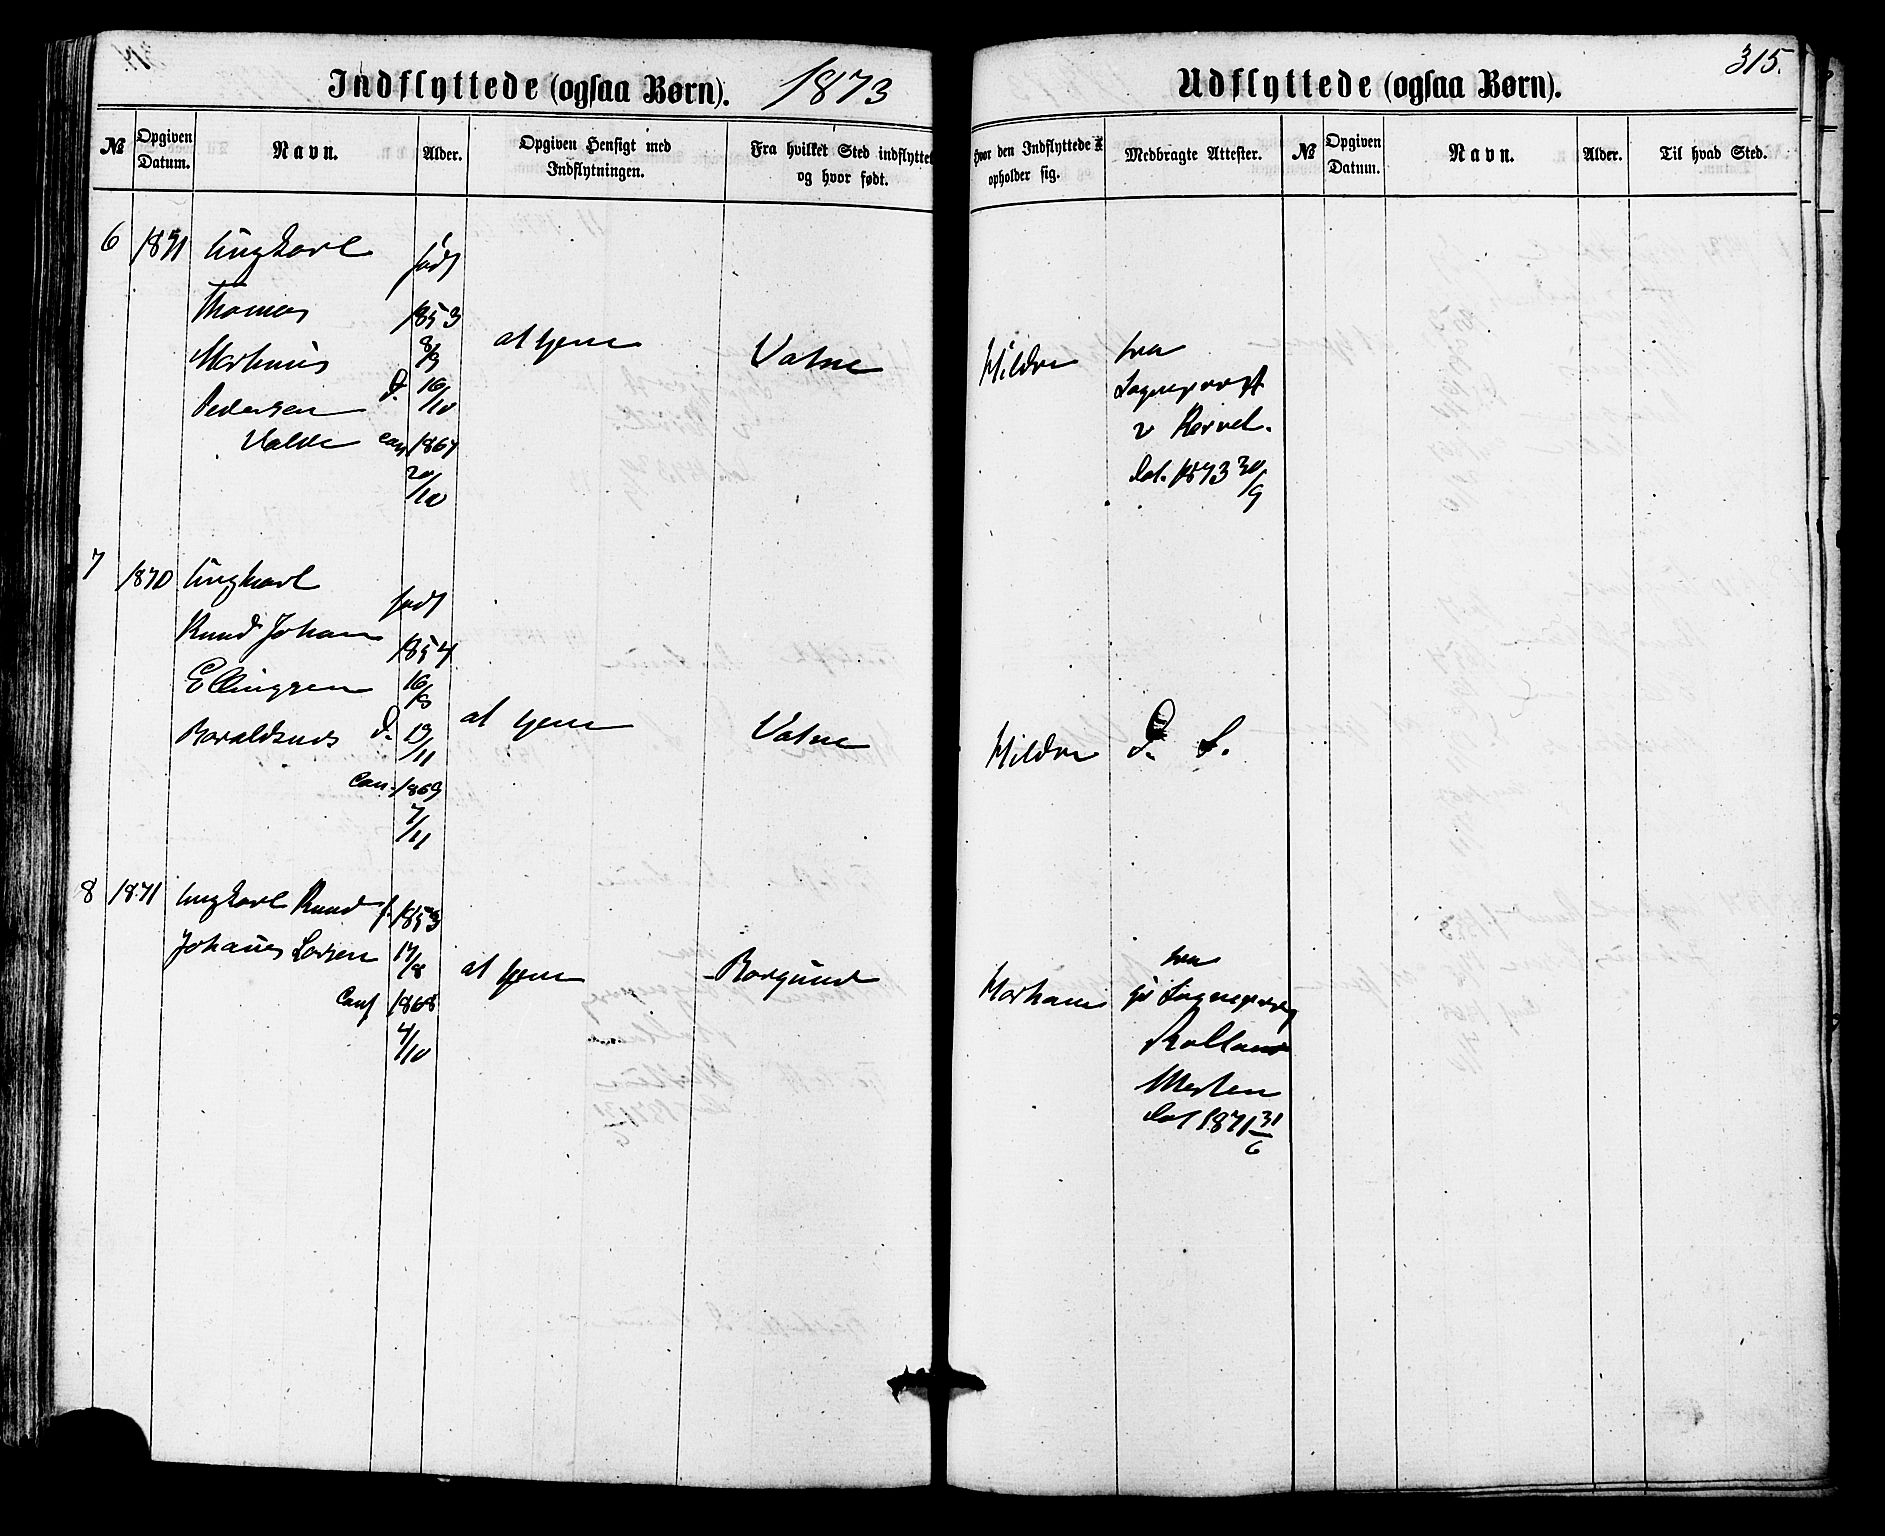 Indflyttede (ogsaa Børn). 1873
Udflyttede (ogsaa Børn). 315.
№
Opgiven Datum.
Navn.
Alder.
Opgiven Hensigt med Indflytningen.
Fra hvilket Sted indflyttet og hvor født.
Hvor den Indflyttede opholder sig.
Medbragte Attester.
№
Opgiven Datum.
Navn.
Alder.
Til hvad Sted.
6 1871 Ungkarl født
Thomas 1853
Martinus 8/9
Pedersen D. 16/10
conf 1867
20/10
at tjene
Vatne
Hildre
fra
Sognepræst
dat. 1873 30/9
7 1870 Ungkarl født
Knud Johan 1854
Ellingsen 16/
D. 19/11
Conf. 1869
7/11
at tjene
Vatne
Hildre
D. S.
8 1871 Ungkarl Knud f. 1853
Johannes Larsen 17/8
Conf 1868
4/10
at tjene
Borgund
fra
Sognepræst
dat 1871 31/6